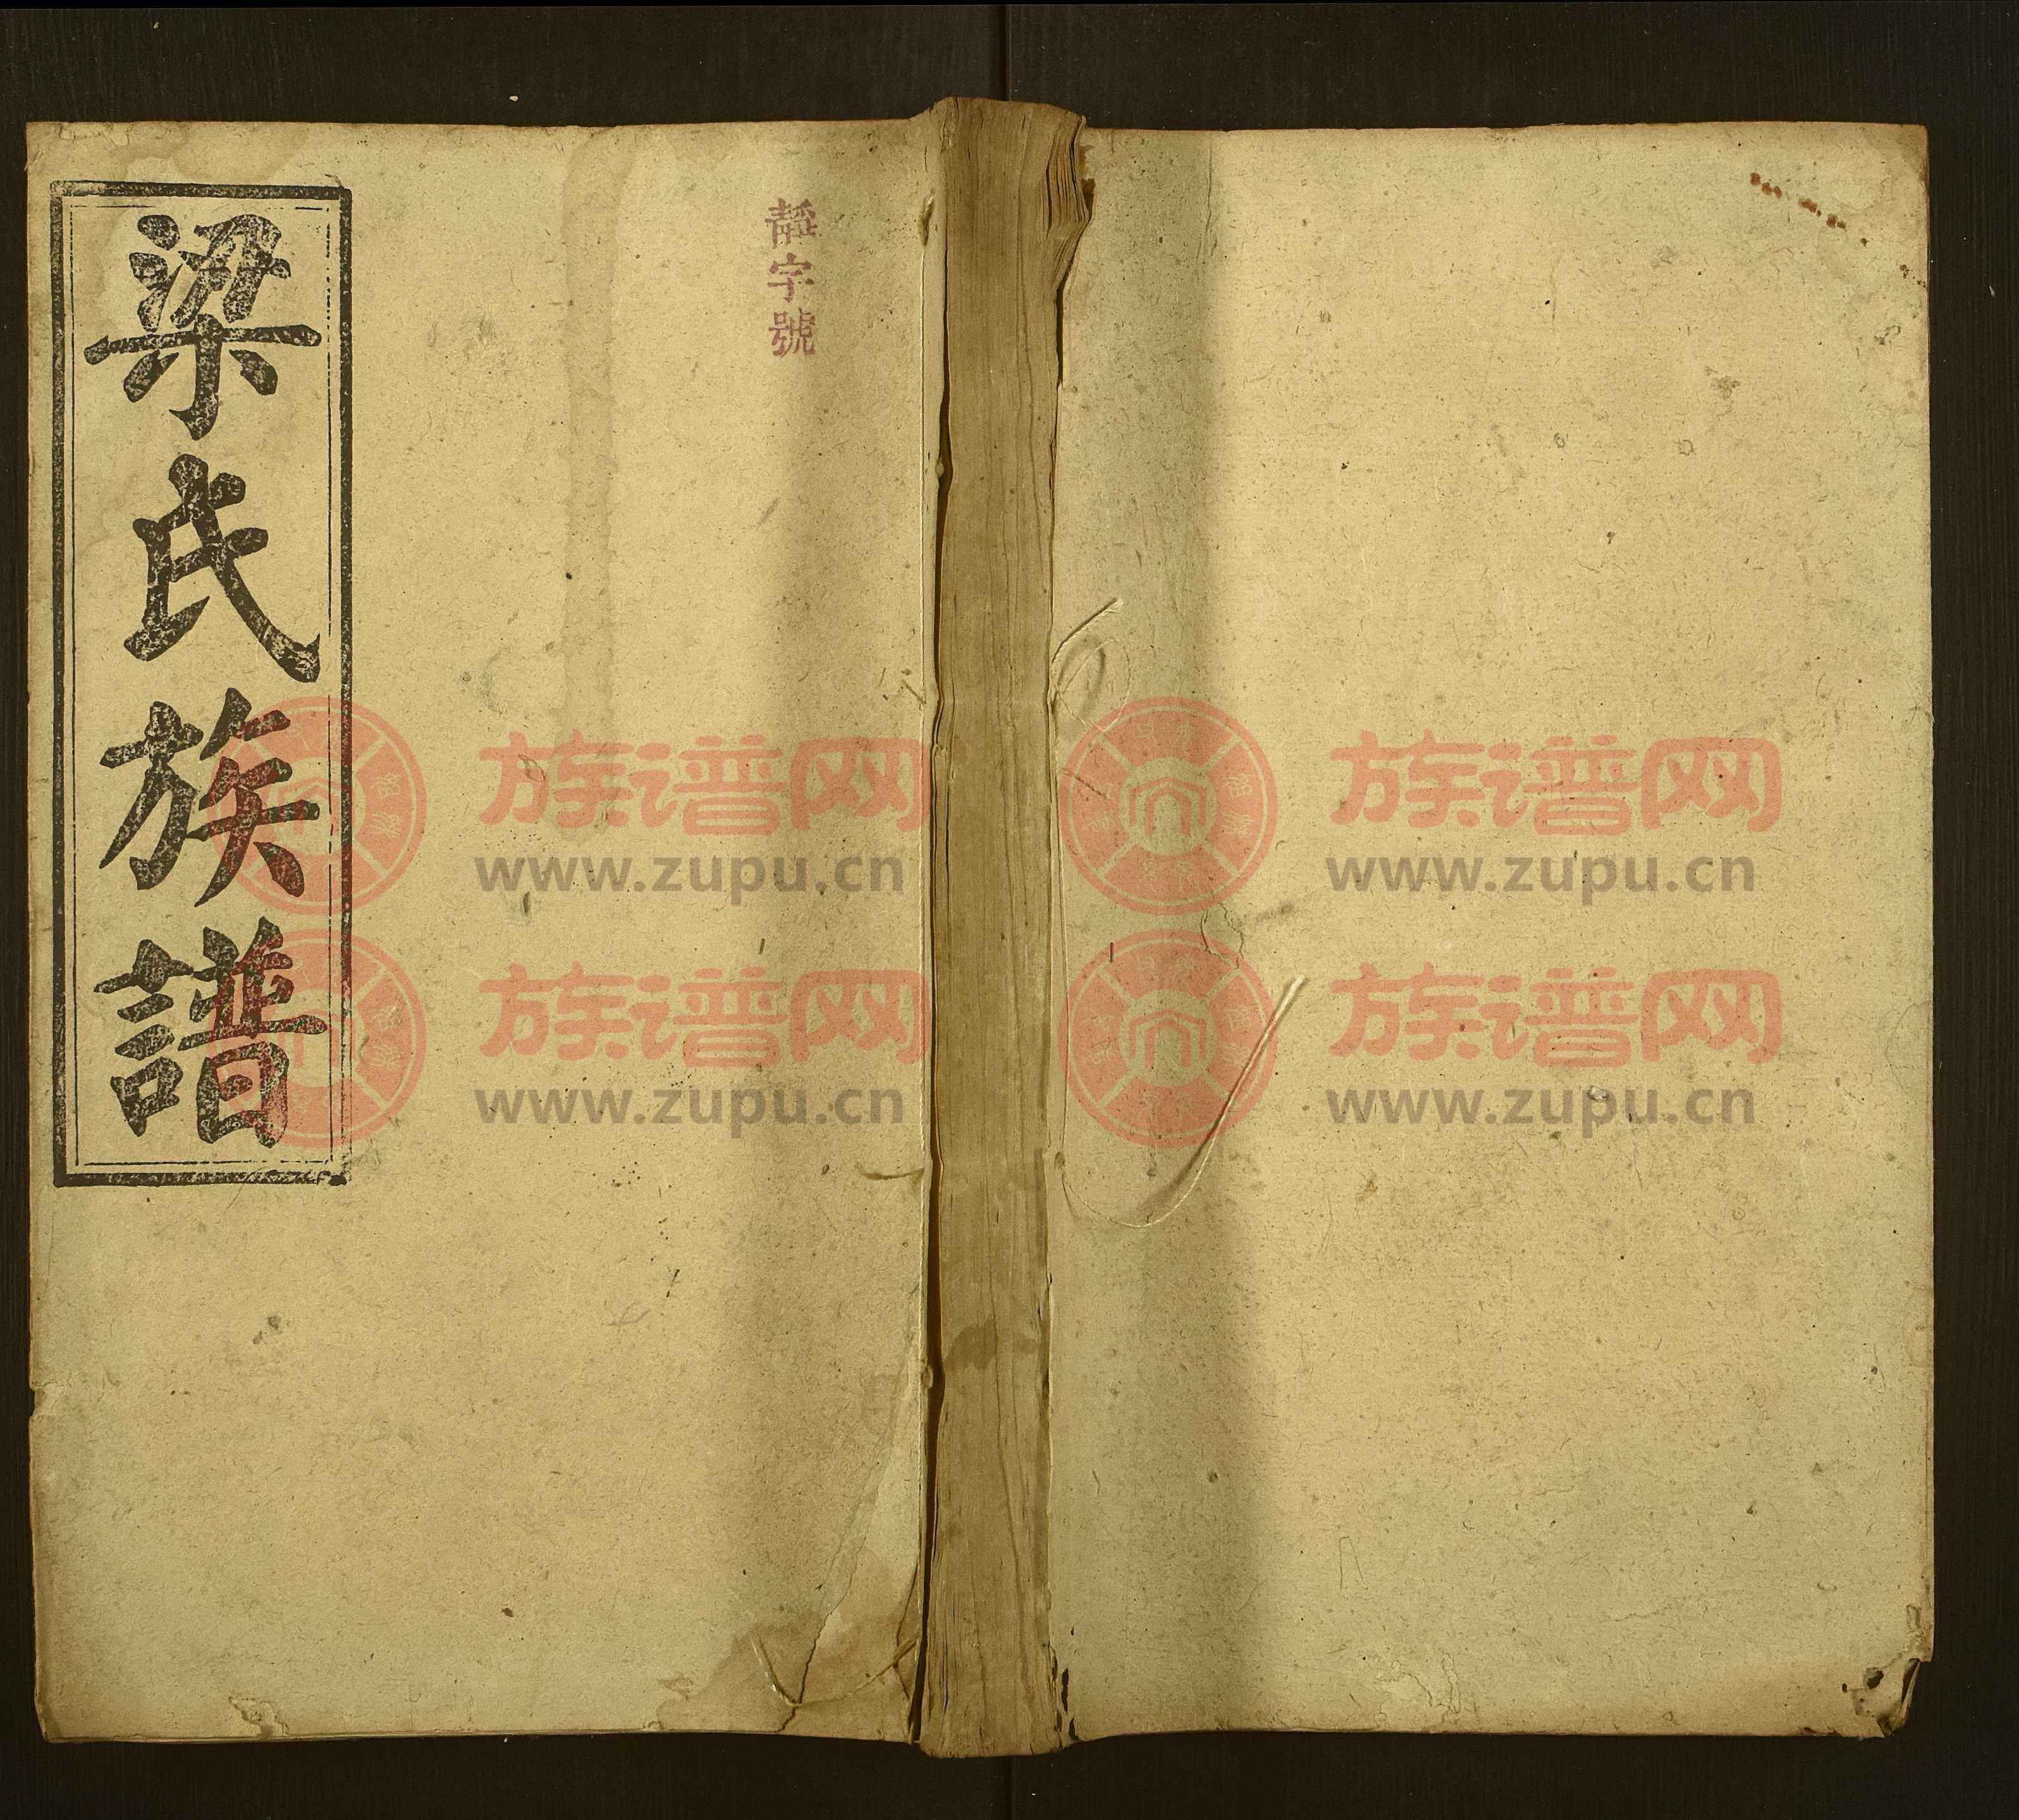 梁氏族譜
字號
族谱网
www.zupu.cn
族谱网
www.zupu.cn
族谱网
www.zupu.cn
族谱网
www.zupu.cn